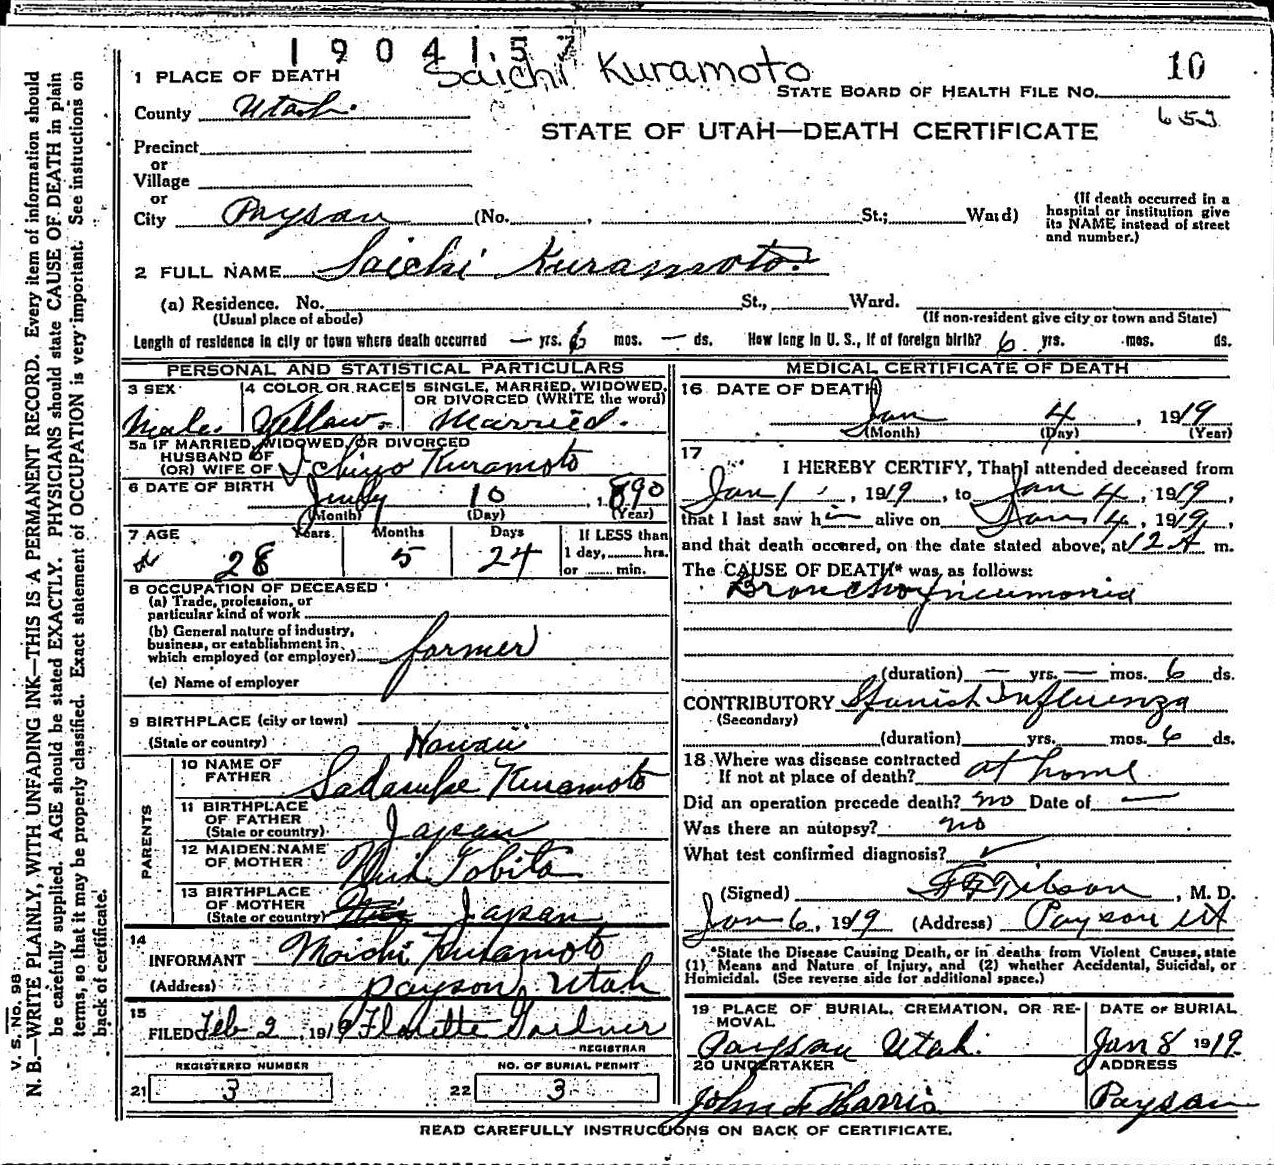 1904157
Saichi Kuramoto
10
1 PLACE OF DEATH
STATE BOARD OF HEALTH FILE NO.
County Utah
653
STATE OF UTAH—DEATH CERTIFICATE
Precinct
or
Village
or
City Payson (No. , St.; Ward)
(If death occurred in a
hospital or institution give
its NAME instead of street
and number.)
2 FULL NAME Saichi Kuramoto.
(a) Residence. No. St., Ward.
(Usual place of abode) (If non-resident give city or town and State)
Length of residence in city or town where death occurred — yrs. 6 mos. — ds. How long in U. S., if of foreign birth? 6 yrs. mos. ds.
PERSONAL AND STATISTICAL PARTICULARS
3 SEX
Male.
4 COLOR OR RACE
Yellow
5 SINGLE, MARRIED, WIDOWED,
OR DIVORCED (WRITE the word)
Married.
5a IF MARRIED, WIDOWED, OR DIVORCED
HUSBAND OF
(OR) WIFE OF Kuramoto
6 DATE OF BIRTH July 10 1890
(Month) (Day) (Year)
7 AGE Years Months Days If LESS than
28 5 24 1 day, hrs.
or min.
8 OCCUPATION OF DECEASED
(a) Trade, profession, or
particular kind of work
(b) General nature of industry,
business, or establishment in
which employed (or employer) farmer
(c) Name of employer
9 BIRTHPLACE (city or town)
(State or country) Hawaii
PARENTS
10 NAME OF
FATHER Sadasuke Kuramoto
11 BIRTHPLACE
OF FATHER
(State or country) Japan
12 MAIDEN NAME
OF MOTHER Tobita
13 BIRTHPLACE
OF MOTHER
(State or country) Japan
14
INFORMANT Moichi Kuramoto
(Address) Payson, Utah
15
FILED Feb 2, 1919 Florette Gardner
REGISTRAR
REGISTERED NUMBER NO. OF BURIAL PERMIT
21 3 22 3
MEDICAL CERTIFICATE OF DEATH
16 DATE OF DEATH
Jan 4, 1919
(Month) (Day) (Year)
17
I HEREBY CERTIFY, That I attended deceased from
Jan 1, 1919, to Jan 4, 1919,
that I last saw him alive on Jan 4, 1919,
and that death occured, on the date stated above, at 12 A m.
The CAUSE OF DEATH* was as follows:
Bronchopneumonia
(duration) — yrs. — mos. 6 ds.
CONTRIBUTORY Spanish Influenza
(Secondary)
(duration) yrs. mos. 6 ds.
18 Where was disease contracted
If not at place of death? at home
Did an operation precede death? no Date of —
Was there an autopsy? no
What test confirmed diagnosis?
(Signed) Tilson, M. D.
Jan 6, 1919 (Address) Payson Ut
*State the Disease Causing Death, or in deaths from Violent Causes, state
(1) Means and Nature of Injury, and (2) whether Accidental, Suicidal, or
Homicidal. (See reverse side for additional space.)
19 PLACE OF BURIAL, CREMATION, OR RE-
MOVAL
Payson Utah.
DATE OF BURIAL
Jan 8 1919.
20 UNDERTAKER
John F Harris
ADDRESS
Payson
READ CAREFULLY INSTRUCTIONS ON BACK OF CERTIFICATE.
V. S. No. 98
N. B.—WRITE PLAINLY, WITH UNFADING INK—THIS IS A PERMANENT RECORD. Every item of information should
be carefully supplied. AGE should be stated EXACTLY. PHYSICIANS should state CAUSE OF DEATH in plain
terms, so that it may be properly classified. Exact statement of OCCUPATION is very important. See instructions on
back of certificate.